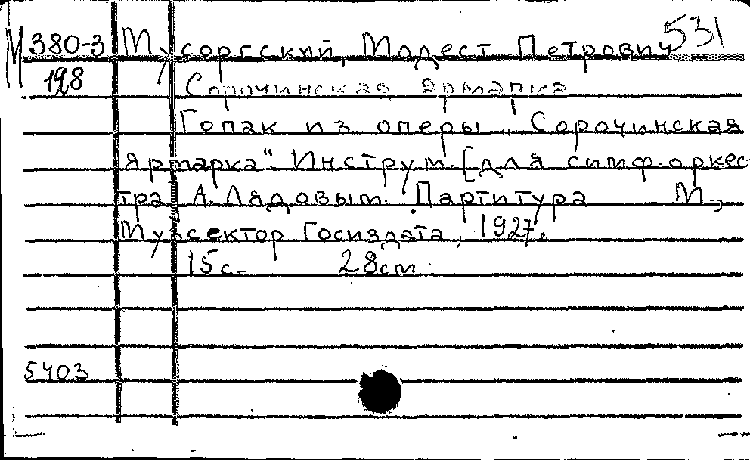 М 380-3 Мусоргский, Модест Петрович 531
198 Сорочинская ярмарка
Гопак из оперы „Сорочинская
ярмарка". Инструм. [для симф. оркес
тра] А. Лядовым. Партитура М.,
Музсектор Госиздата, 1927.
15с. 28см.
5403